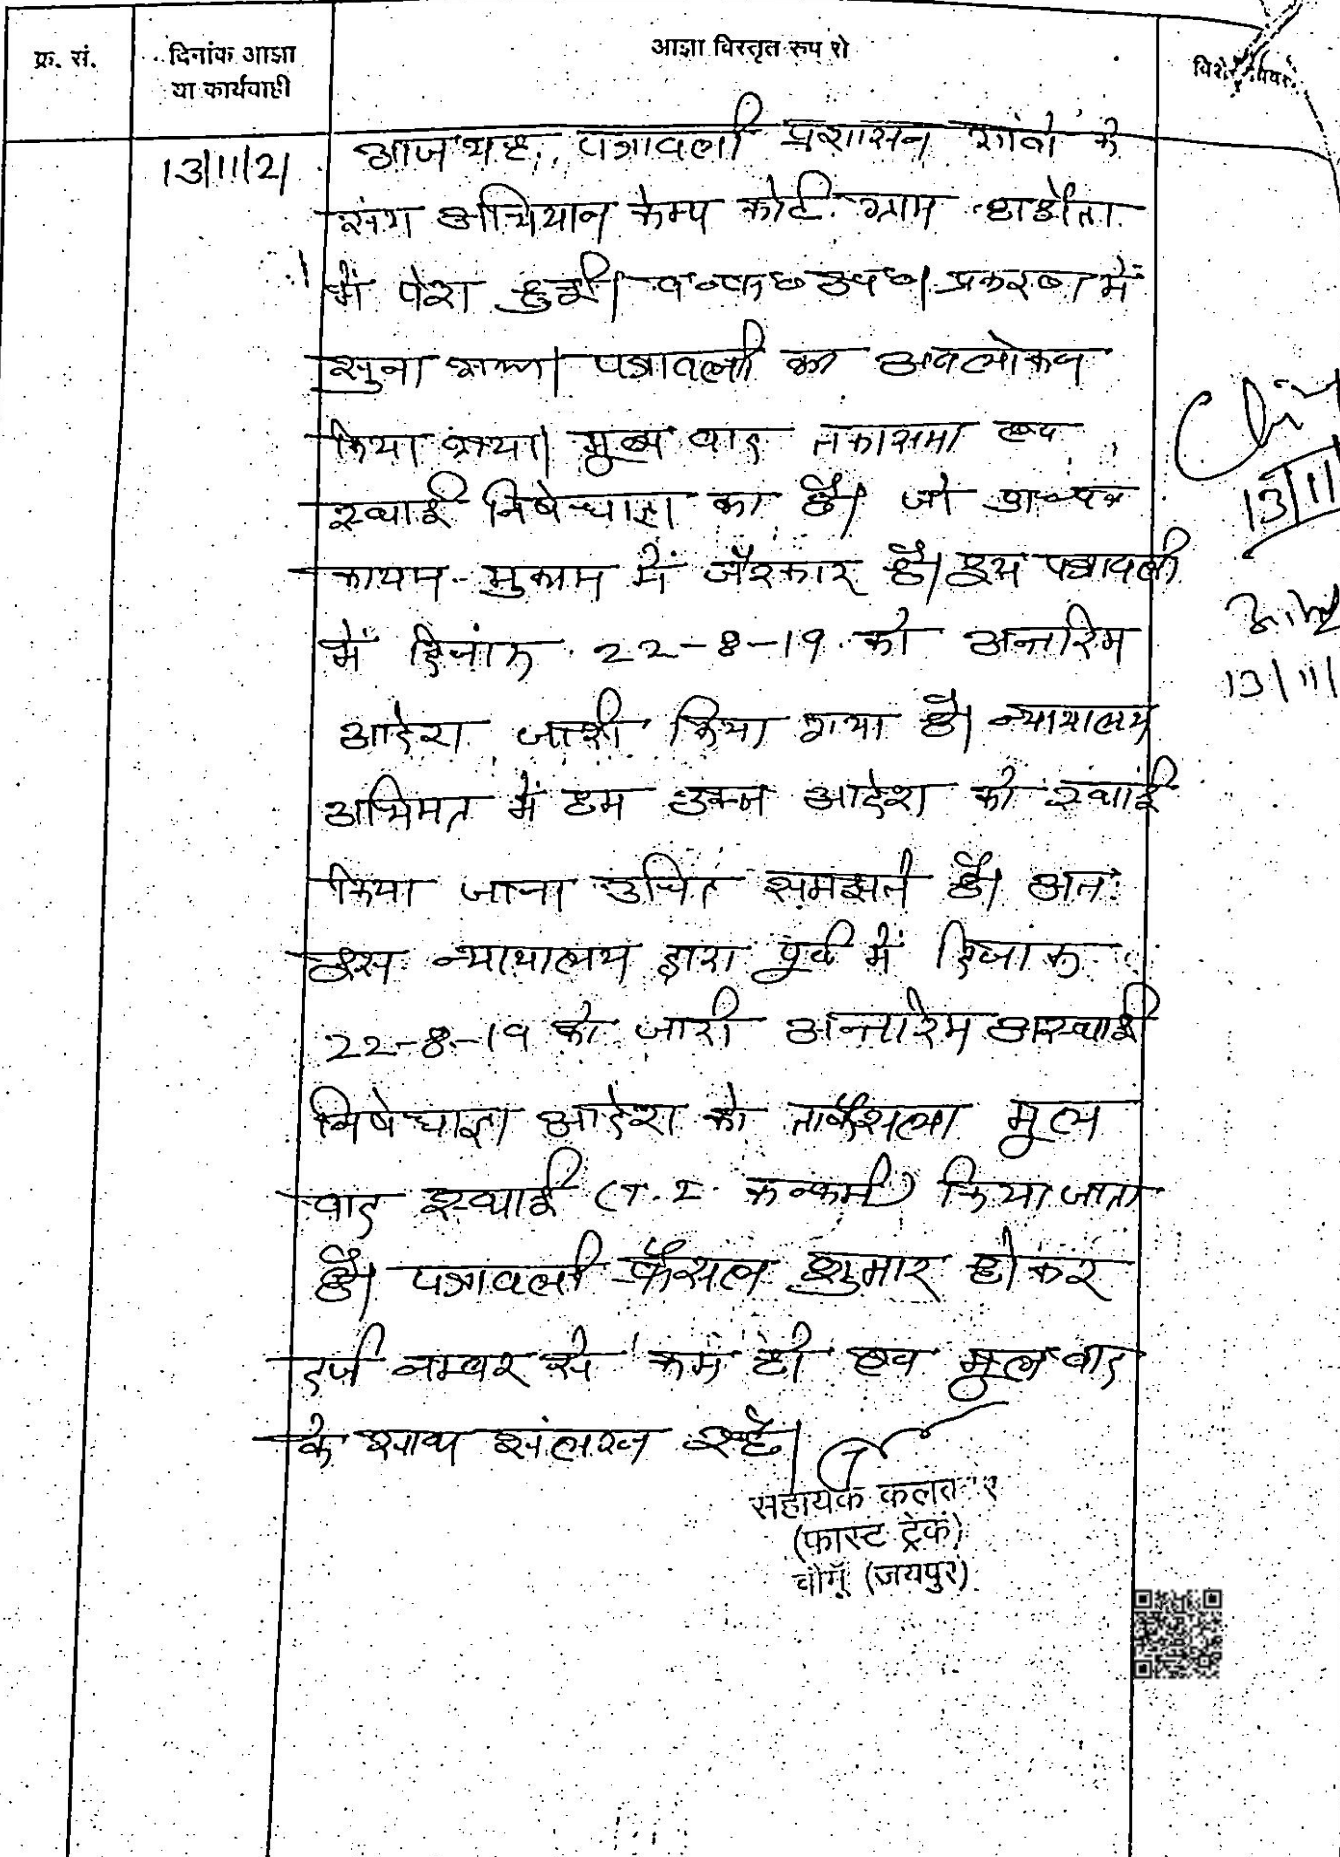 क्र. सं.
दिनांक आज्ञा
या कार्यवाही
आज्ञा विस्तृत रुप से
13/11/21
आज यह पत्रावली प्रशासन गांवो के
संग अभियान केम्प कोर्ट ग्राम हाडौता
में पेश हुई। उप०। प्रकरण में
सुना गया। पत्रावली का अवलोकन
किया गया। मूल वाद तकासमा एवं
स्थाई निषेधाज्ञा का है। जो
कायम मुकाम में जैरकार है। इस पत्रावली
में दिनांक 22-8-19 को अन्तरिम
आदेश जारी किया गया है। न्यायालय
अभिमत में हम उक्त आदेश को स्थाई
किया जाना उचित समझते है। अतः
इस न्यायालय द्वारा पूर्व में दिनांक
22-8-19 को जारी अन्तरिम अस्थाई
निषेधाज्ञा आदेश को ताफैसला मूल
वाद स्थाई (T.I. कन्फर्म) किया जाता
है। पत्रावली फैसल शुमार होकर
दर्ज नम्बर से कम हो एवं मूल वाद
के साथ संलग्न रहे।
सहायक कलक्टर
(फास्ट ट्रेक)
चौमूं (जयपुर)
13/11
13/11/